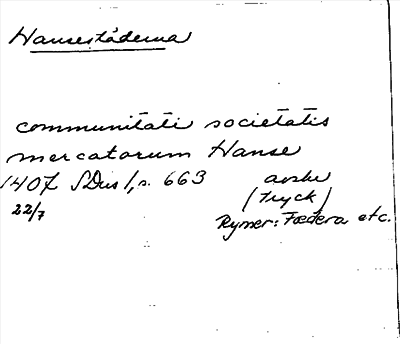 Hansestäderna
communitati societatis
mercatorum Hanse
1407 SDns 1, s. 663 avskr
22/7 (tryck)
Rymer: Foedera etc.